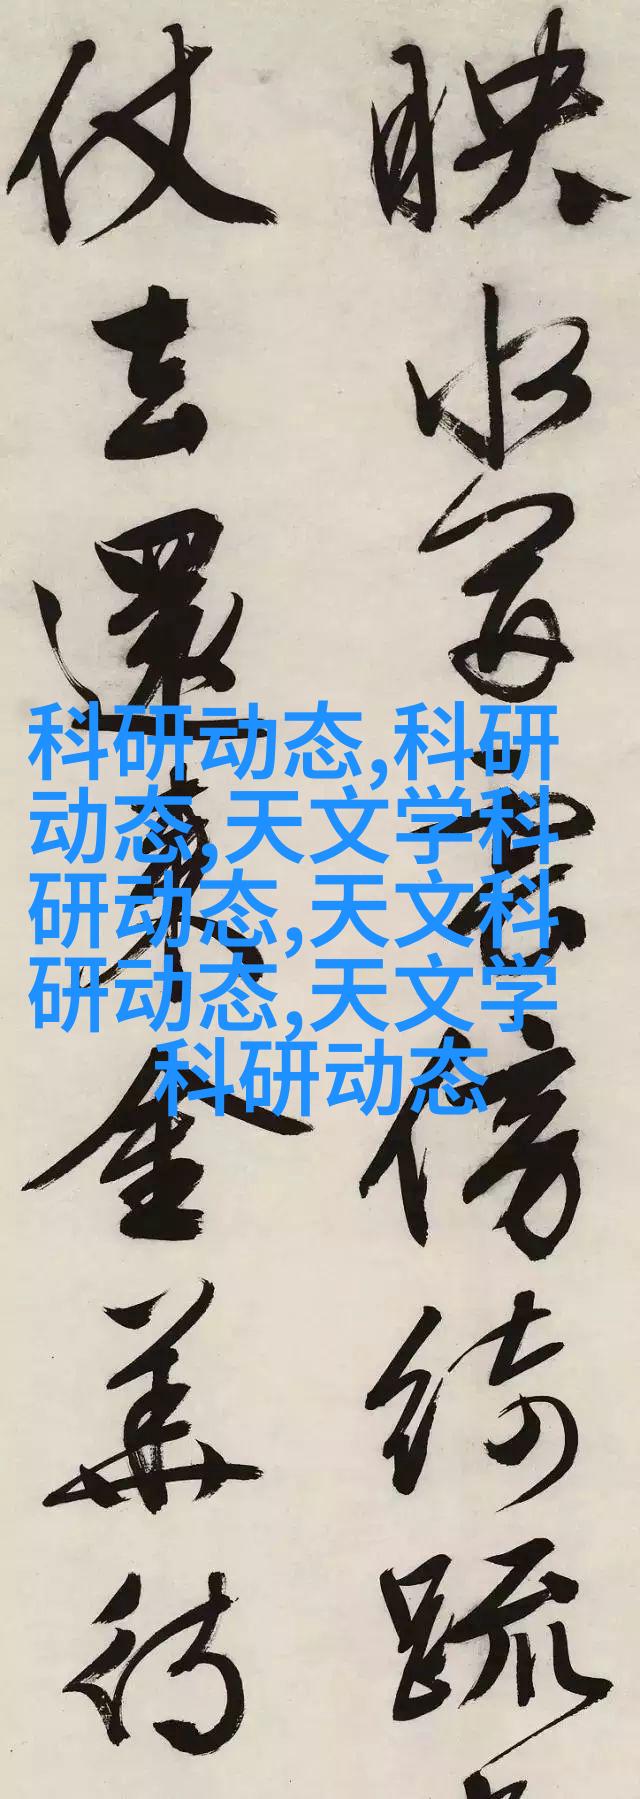 映水傍綺疏
仗去還金華侍
科研动态,科研
动态,天文学科
研动态,天文科
研动态,天文学
科研动态